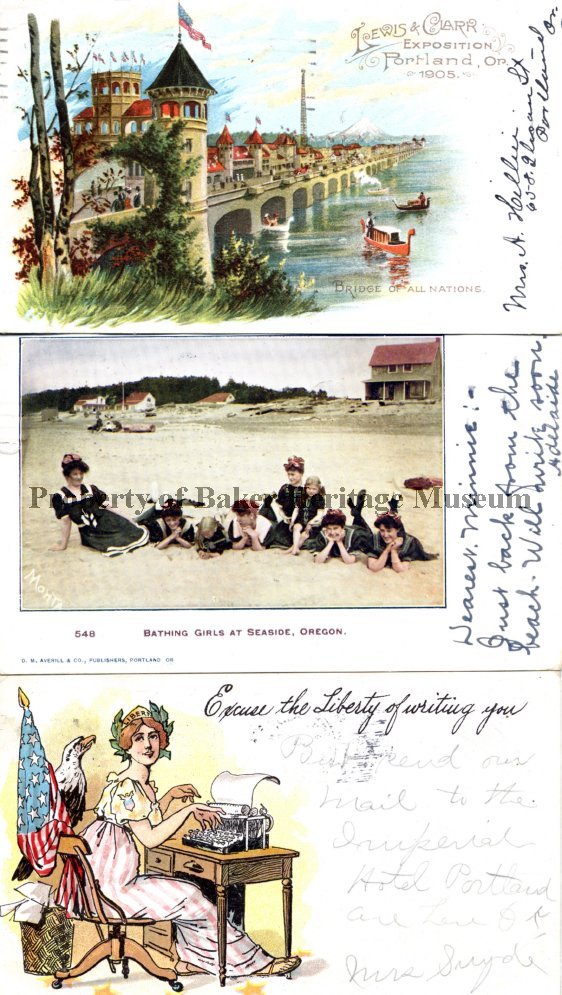 Lewis & Clark
Exposition
Portland, Or.
1905.
Bridge of All Nations.
Mrs. A.
Portland Or
Property of Baker Heritage Museum
548 Bathing Girls at Seaside, Oregon.
D. M. Averill & Co., Publishers, Portland Or
Dearest Minnie :-
Just back from the
beach. Will write soon
Adelaide
LIBERTY
Excuse the Liberty of writing you
send our
mail to the
Imperial
Hotel Portland
are
Mrs